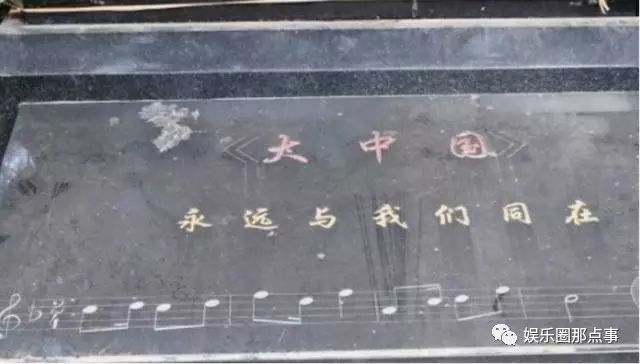 《大中国》
永远与我们同在
娱乐圈那点事